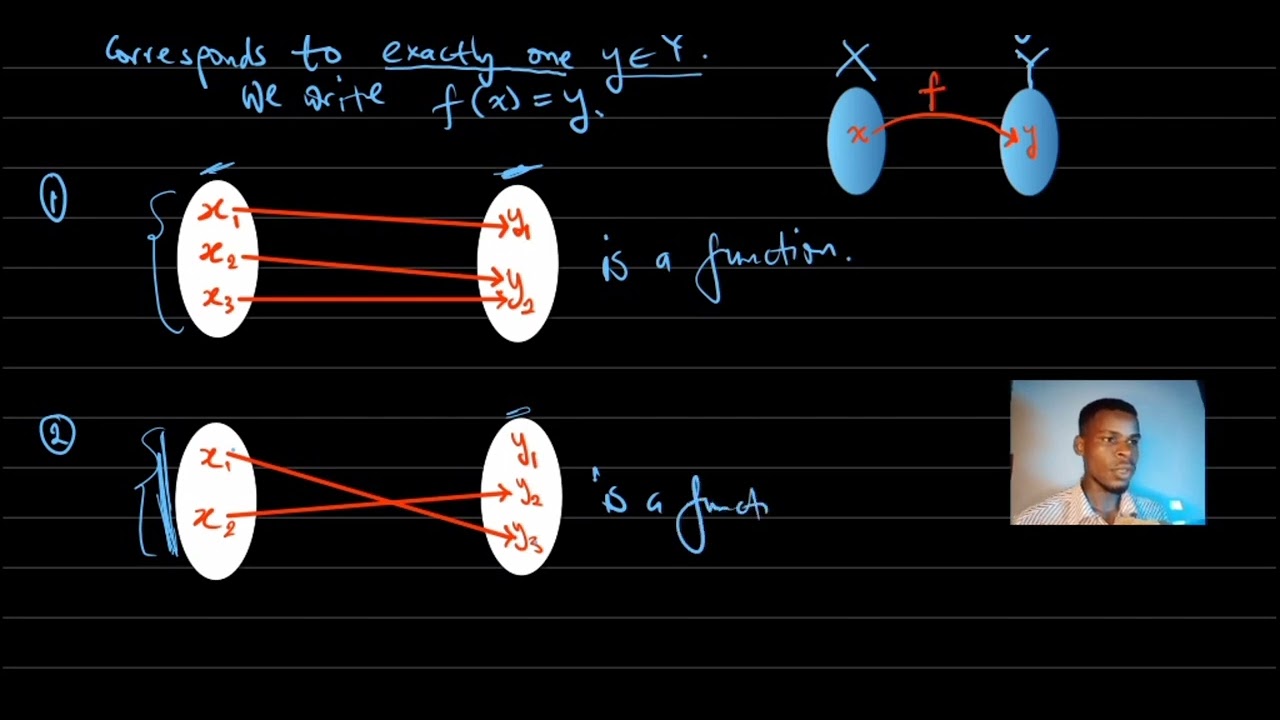 corresponds to exactly one y ∈ Y.
We write f(x) = y.
X Y
f
x y
①
x₁ y₁
x₂ y₂
x₃
is a function.
②
x₁ y₁
x₂ y₂
y₃
is a functi